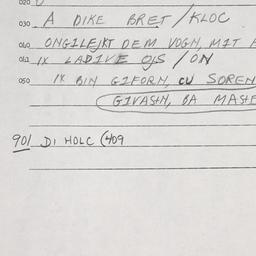 020
030 A DIKE BRET / KLOC
040 ONGILEJKT DEM VOGN, MIT
041 IX LADIVE OJS / ON
050 IX BIN GIFORN, CU SOREN
GIVASHN, BA MASHE
901 DI HOLC (409